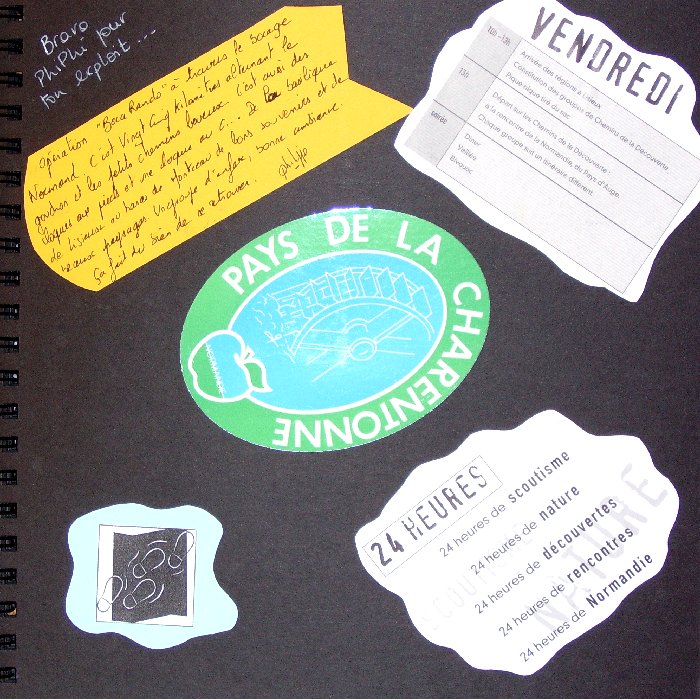 Bravo
PhiPhi pour
ton exploit ...
Opération "Boca Rando" à travers le bocage
Normand. C'est Vingt Cinq Kilomètres alternant le
goudron et les petits chemins boueux. C'est aussi des
cloques aux pieds et une cloque au c... De la basilique
de Lisieux au haras de de bons souvenirs et de
beaux paysages. Un groupe d'enfer, bonne ambiance.
Ça fait du bien de se retrouver.
philippe
VENDREDI
10h - 13h
Arrivée des régions à Lisieux
Constitution des groupes de Chemins de la Découverte
Pique-nique tiré du sac
13h
Départ sur les Chemins de la Découverte :
à la rencontre de la Normandie, du Pays d'Auge.
Chaque groupe sur un itinéraire différent.
soirée
Dîner
Veillée
Bivouac
PAYS DE LA CHARENTONNE
24 HEURES
24 heures de scoutisme
24 heures de nature
24 heures de découvertes
24 heures de rencontres
24 heures de Normandie
NATURE